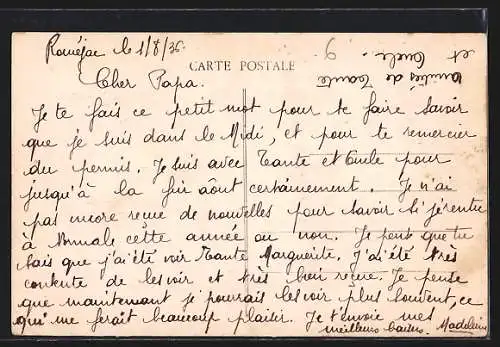 Roméjac le 1/8/36
CARTE POSTALE
Amitiés de Tante
et Oncle.
Cher Papa.
Je te fais ce petit mot pour te faire savoir
que je suis dans le Midi, et pour te remercier
du permis. Je suis avec Tante et Oncle pour
jusqu'à la fin août certainement. Je n'ai
pas encore reçue de nouvelles pour savoir si j'rentre
à Normale cette année ou non. Je pense que tu
sais que j'ai été voir Tante Marguerite. J'ai été très
contente de les voir et très bien reçue. Je pense
que maintenant je pourrais les voir plus souvent, ce
qui me ferait beaucoup plaisir. Je t'envoie mes
meilleurs baisers. Madeleine